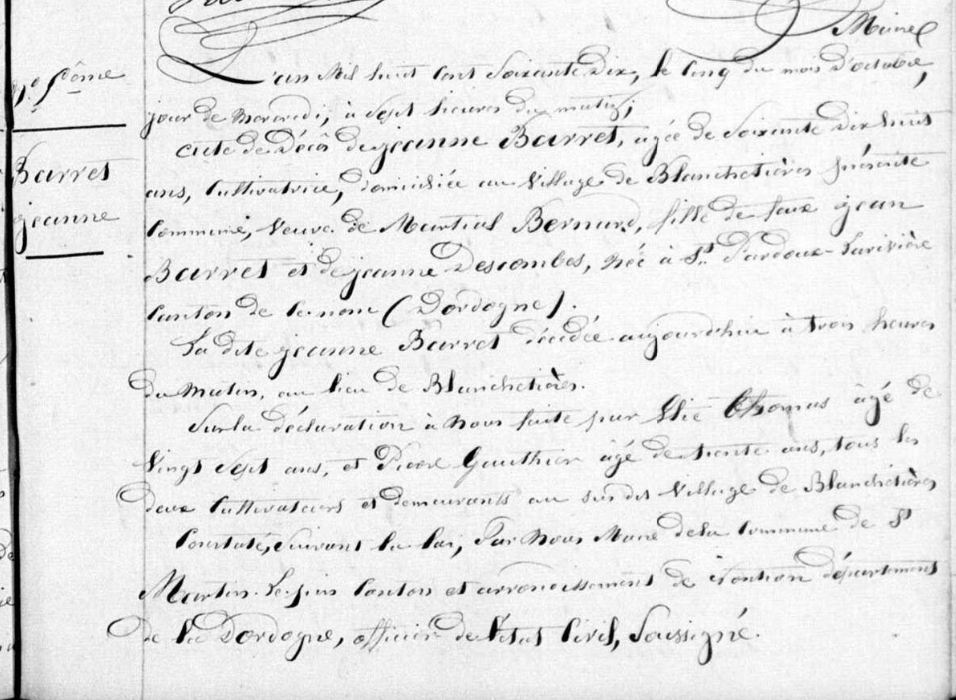 Maire
L'an Mil huit Cent Soixante Dix, le Cinq du mois d'octobre,
jour de Mercredi, à Sept heures du matin,
acte de Décès de jeanne Barret, âgée de Soixante Dix huit
ans, Cultivatrice, domiciliée au Village de Blanchetières présente
Commune, Veuve de Martial Bernard, fille de feux jean
Barret et de jeanne Descombes, née à St. Pardoux-Larivière
Canton de (Dordogne).
La dite jeanne Barret décédée aujourd'hui à trois heures
du matin, au lieu de Blanchetières.
Sur la déclaration à Nous faite par Elie Thomas âgé de
Vingt Sept ans, et Pierre Gauthier âgé de trente ans, tous les
deux Cultivateurs et demeurants au susdit Village de Blanchetières
Constaté, Suivant la loi, Par Nous Maire de la Commune de St
Martin-le-pin Canton et arrondissement de Nontron département
de la Dordogne, officier de l'état Civil, Soussigné.
Barret
jeanne